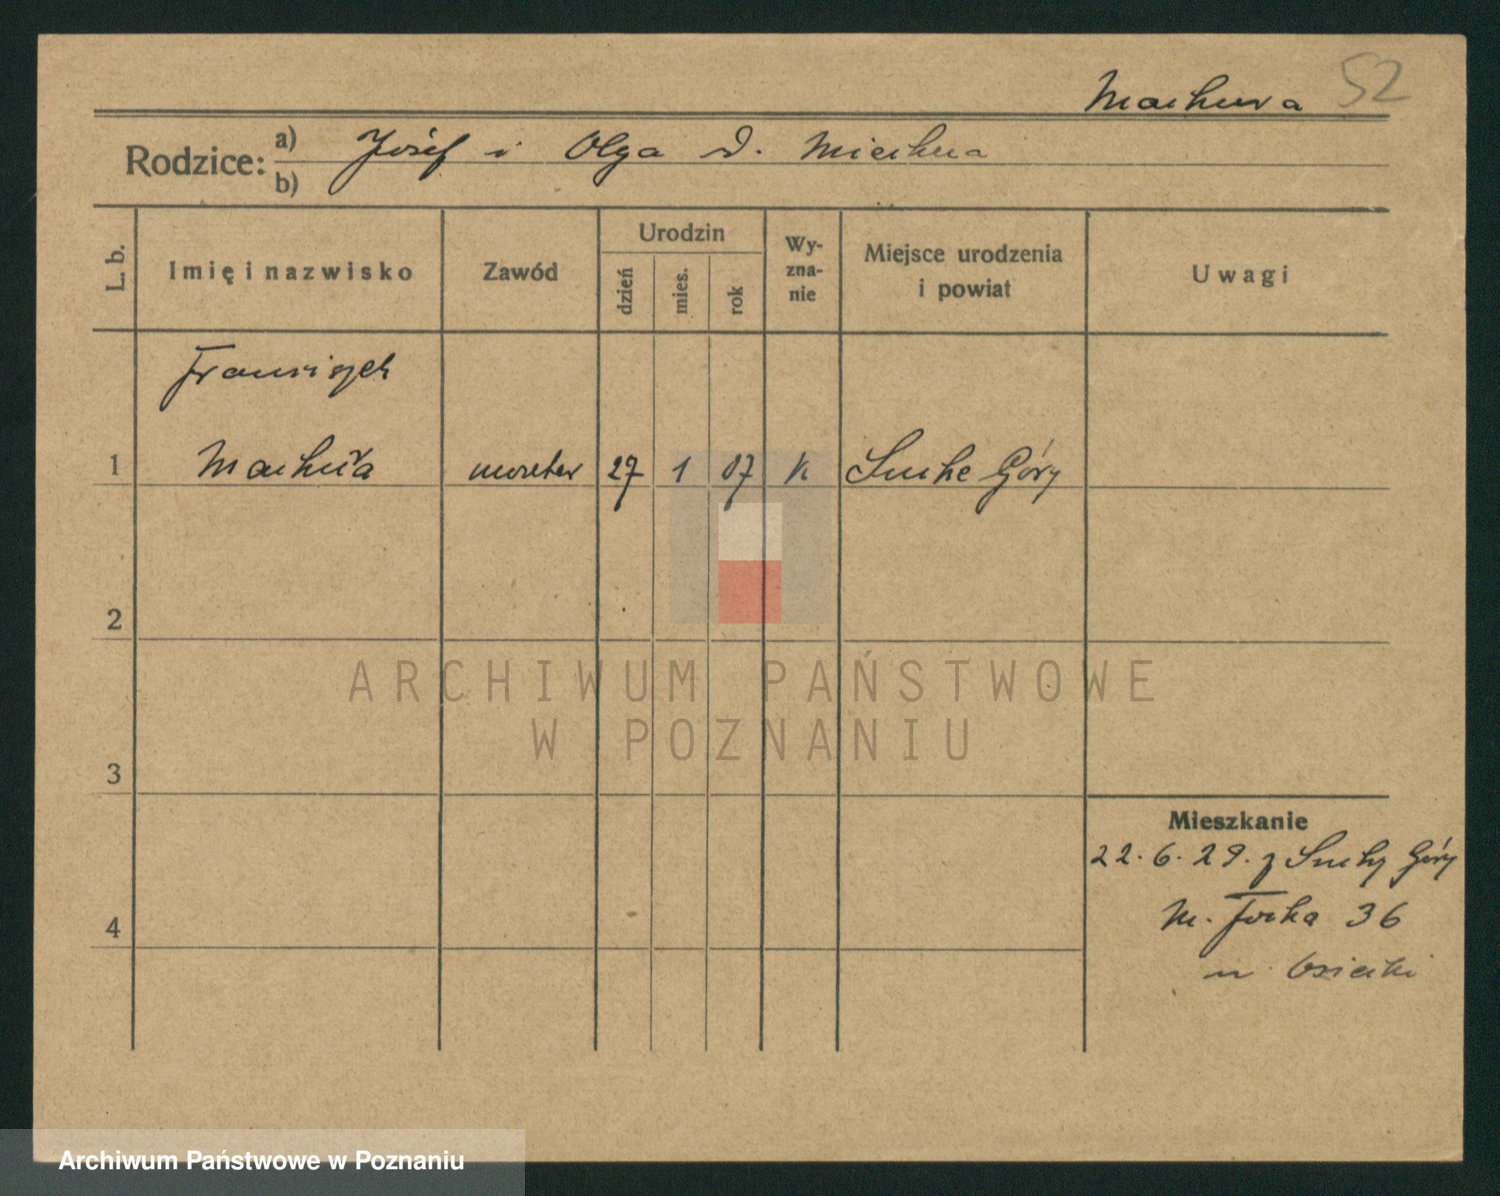 Machura 52
Rodzice: a) Józef i Olga d. Miechua
b)
L. b. Imię i nazwisko Zawód Urodzin dzień mies. rok Wy-zna-nie Miejsce urodzenia i powiat Uwagi
Franciszek
1 Machura 27 1 07 k Suche Góry
2
3
4
Mieszkanie
22. 6. 29. z Suchy Góry
M. Focha 36
u
ARCHIWUM PAŃSTWOWE
W POZNANIU
Archiwum Państwowe w Poznaniu